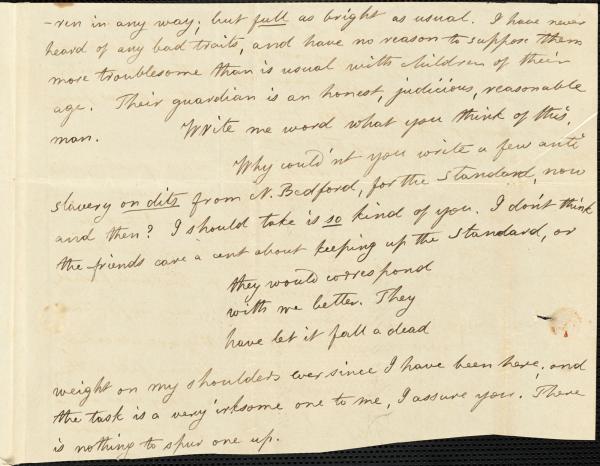 -ren in any way; but full as bright as usual. I have never
heard of any bad traits, and have no reason to suppose them
more troublesome than is usual with children of their
age. Their guardian is an honest, judicious, reasonable
man. Write me word what you think of this.
Why could'nt you write a few anti
slavery on dits from N. Bedford, for the Standard, now
and then? I should take is so kind of you. I don't think
the friends care a cent about keeping up the Standard, or
they would correspond
with me better. They
have let it fall a dead
weight on my shoulders ever since I have been here; and
the task is a very irksome one to me, I assure you. There
is nothing to spur one up.